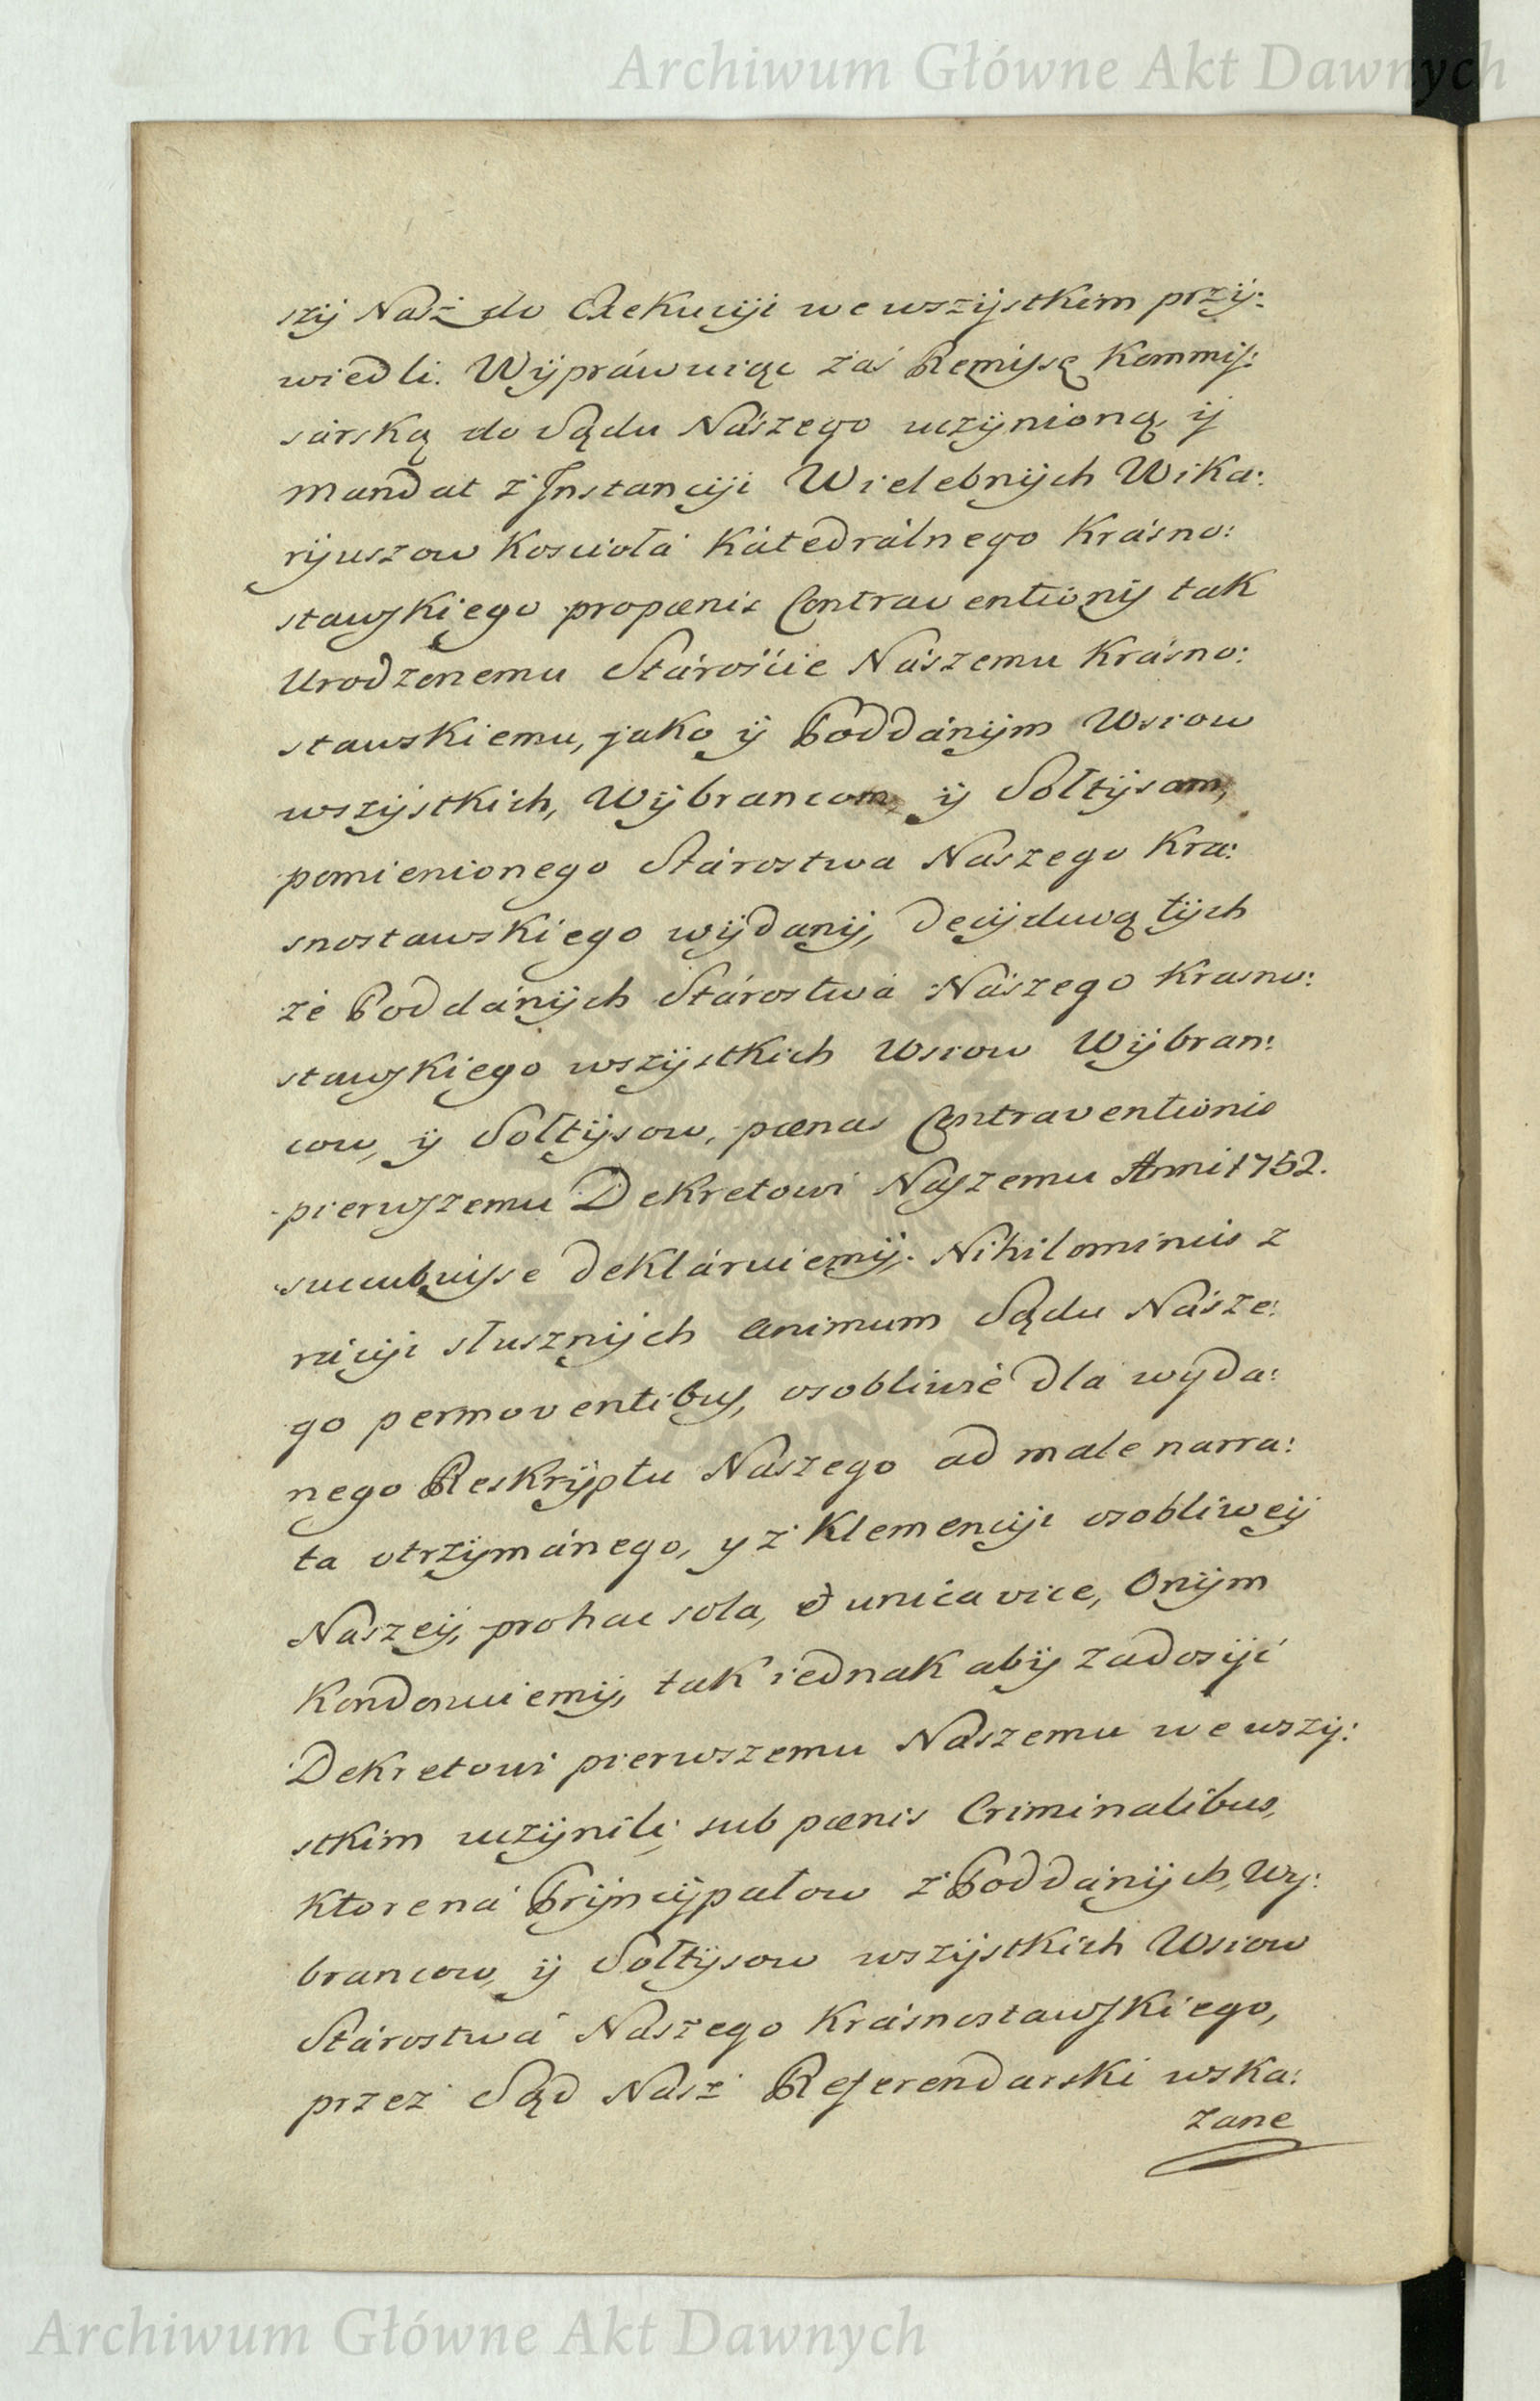 Archiwum Główne Akt Dawnych
szÿ Nasz do Exekucÿi we wszÿstkim przÿ:
wiedli. Wÿpráwuiąc zaś Remissę Kommis:
sárską do Sądu Nászego uczÿnioną, ÿ
Mandat z Jnstancÿi Wielebnÿch Wika:
rÿuszow Koscioła Kátedrálnego Krásno:
stawskiego pro pœnis Contraventionis tak
Urodzonemu Stárościie Nászemu Krásno:
stawskiemu, jako ÿ Poddánÿm Wsiow
wszÿstkich, Wÿbrancom, ÿ Sołtÿsom,
pomienionego Stárostwa Naszego Kra:
snostawskiego wÿdanÿ, decÿduią tÿch
że Poddánÿch Stárostwá Nászego Krasno:
stawskiego wszÿstkich Wsiow Wÿbran:
cow, ÿ Sołtÿsow, pœnas Contraventionis
pierwszemu Dekretowi Naszemu Anni 1752.
succubuisse deklárujemÿ. Nihilominus z
rácÿi słusznÿch animum Sądu Násze:
go permoventibus, osobliwie dla wyda:
nego Reskrÿptu Naszego ad male narra:
ta otrzÿmánego, y z Klemencÿi osobliweÿ
Naszeÿ, pro hac sola, et unica vice, Onÿm
Kondonuiemÿ, tak iednak abÿ zadosÿć
Dekretowi pierwszemu Naszemu we wszÿ:
stkim uczÿnili, sub pœnis Criminalibus,
Ktore ná Prÿncÿpałow z Poddánÿch, Wy:
brancow, ÿ Sołtÿsow wszÿstkich Wsiow
Stárostwá Naszego Krásnostawskiego,
przez Sąd Nasz Referendarski wska:
zane
Archiwum Główne Akt Dawnych